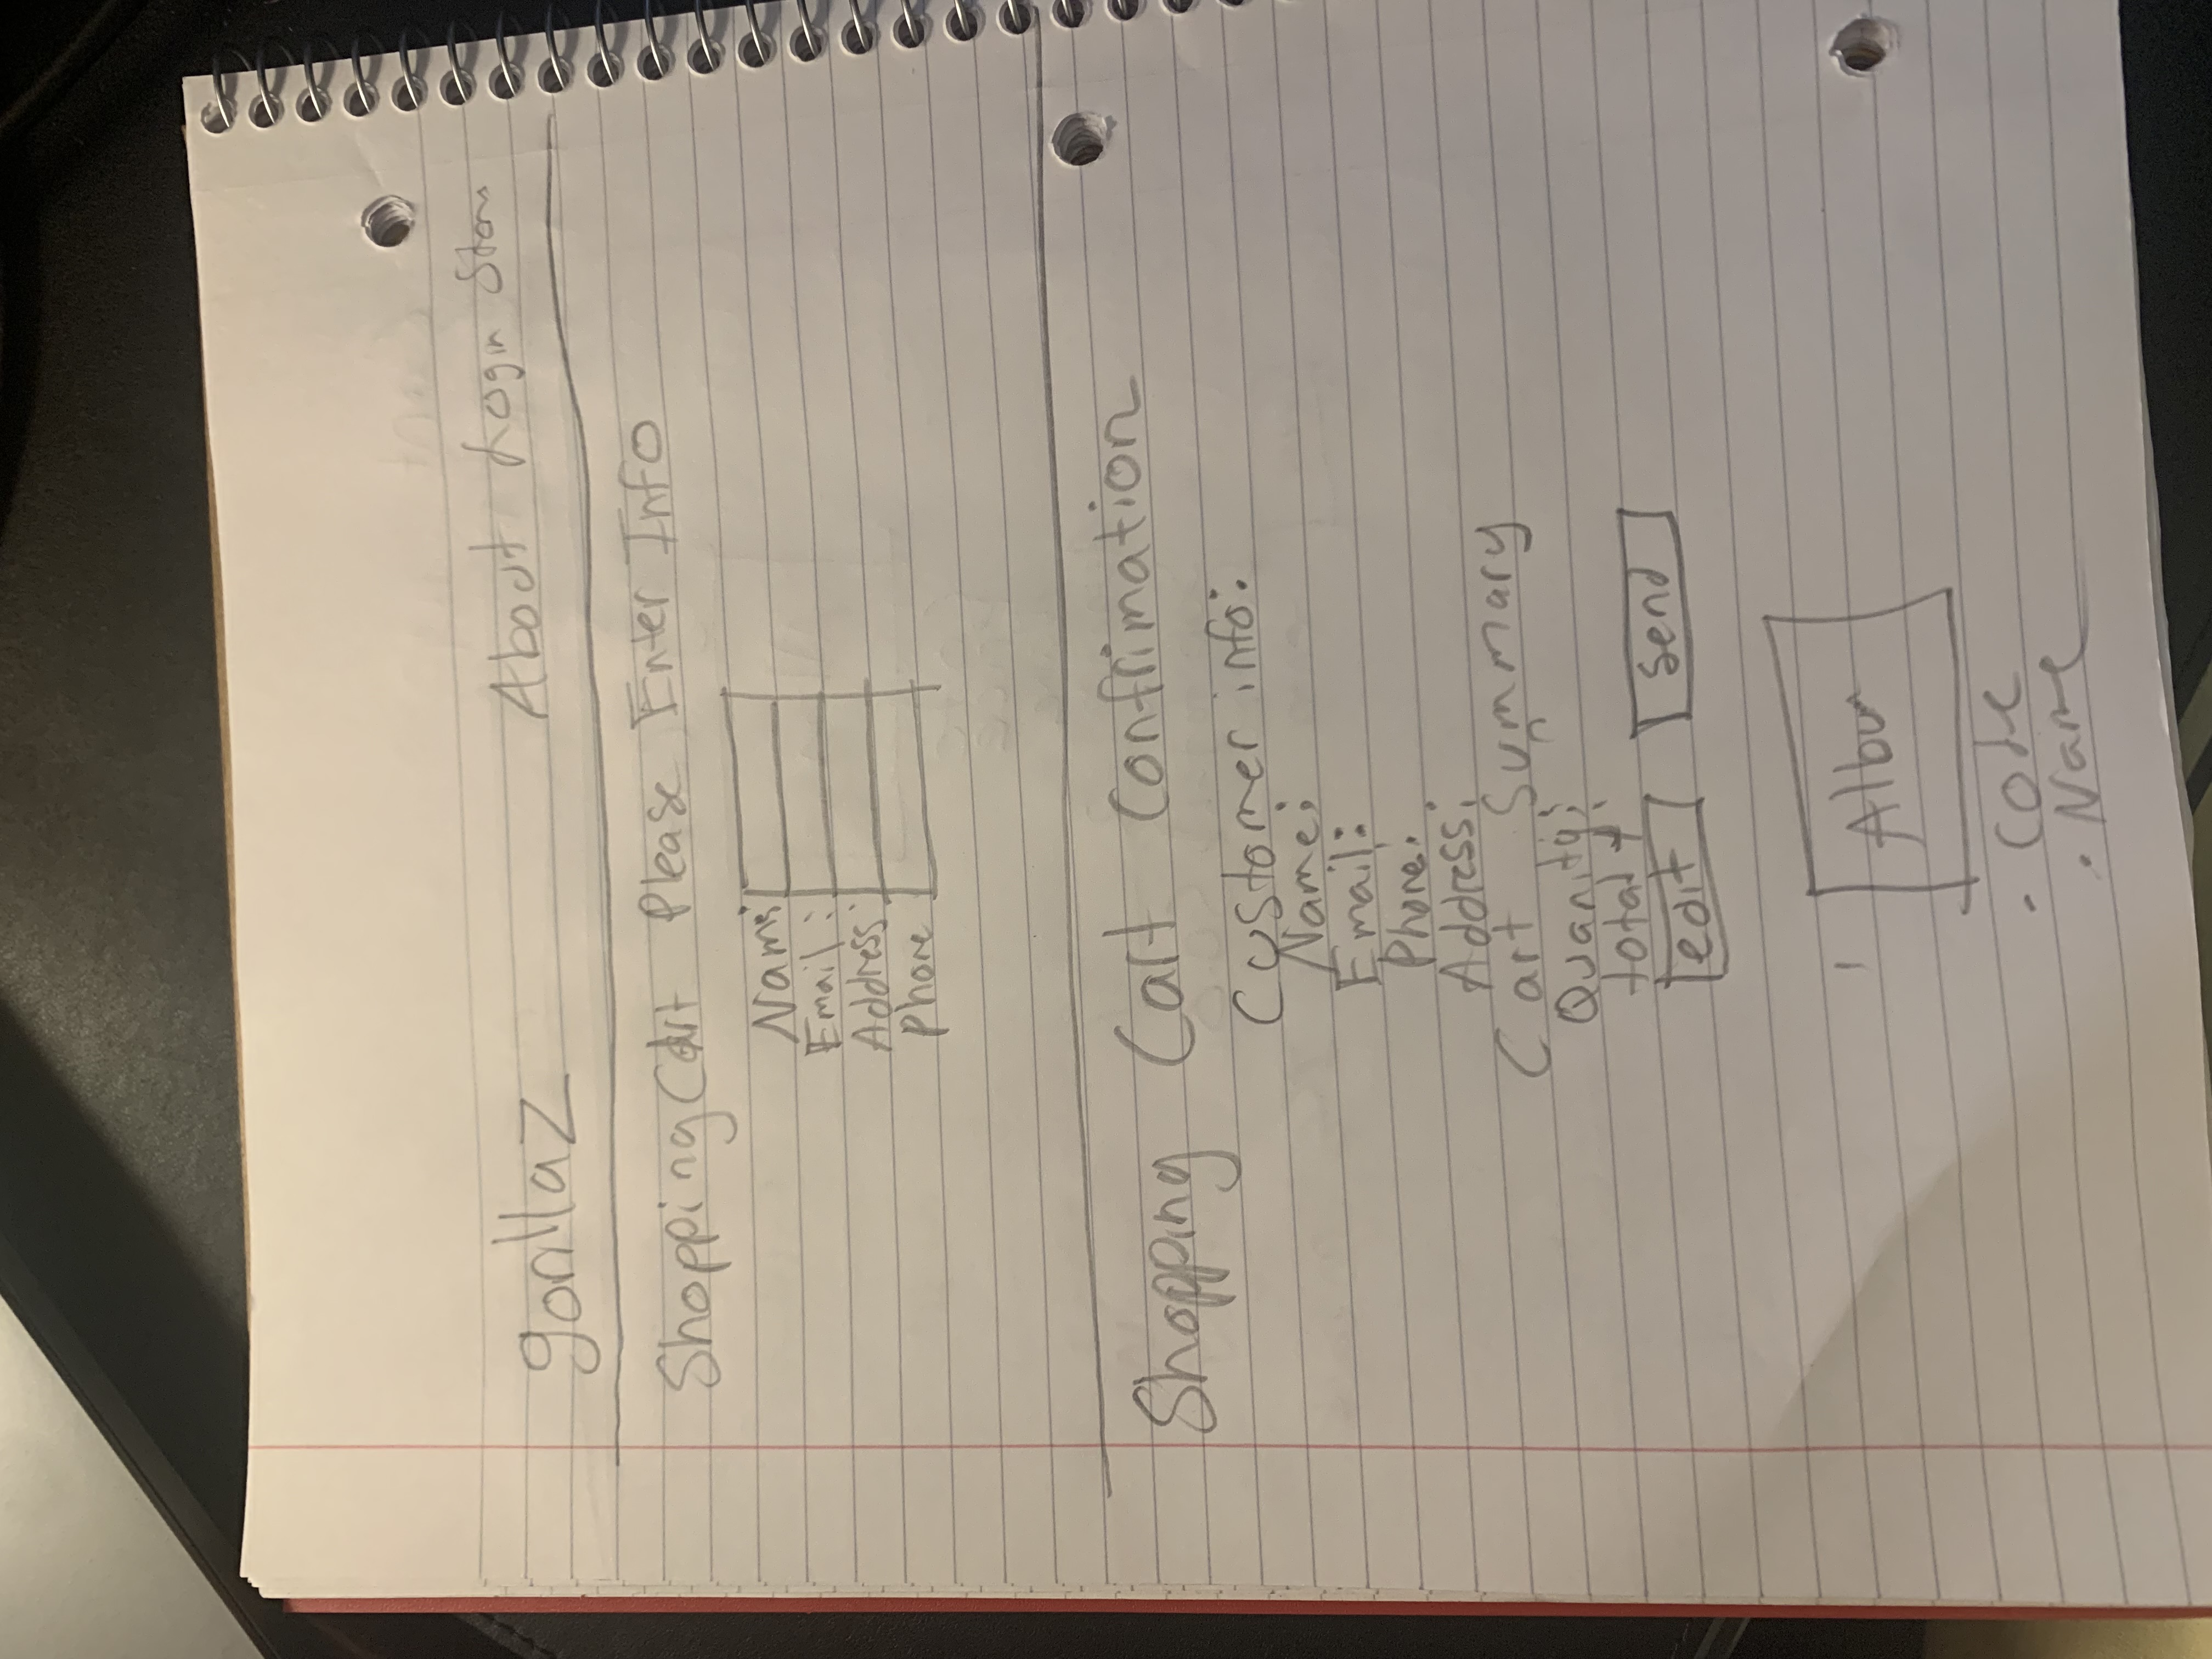 gorillaz About Login Store
Shopping Cart Please Enter Info
Name:
Email :
Address:
Phone
Shopping Cart Confrimation
Customer info:
Name:
Email:
Phone:
Address:
Cart Summary
Quanity:
total :
edit send
Album
. Code
. Name